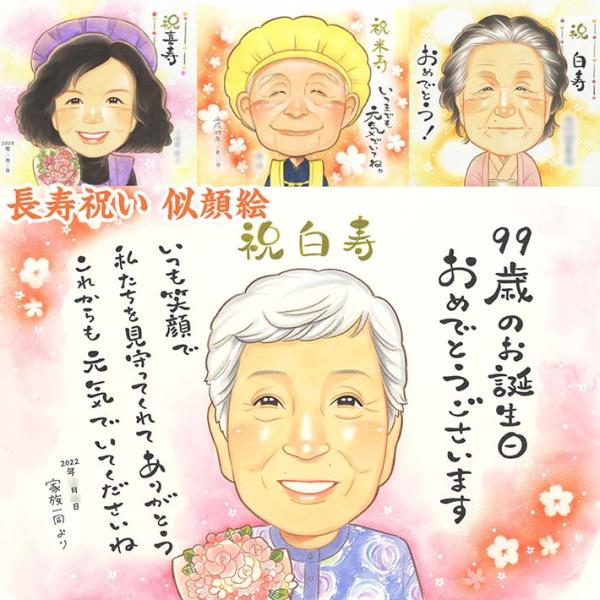 祝喜寿
2023
祝米寿
いつまでも
元気でいてね。
祝白寿
おめでとう!
長寿祝い 似顔絵
祝白寿
99歳のお誕生日
おめでとうございます
いつも笑顔で
私たちを見守ってくれてありがとう
これからも元気でいてくださいね
2022
年 月 日
家族一同より